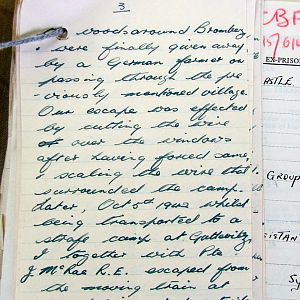 3
woods around Bromberg
& were finally given away
by a German farmer on
passing through the pre-
viously mentioned village.
Our escape was effected
by cutting the wire
over the windows
after having forced same,
& scaling the wire that
surrounded the camp.
Later, Oct 5th 1942 whilst
being transported to a
strafe camp at
I together with Pte.
J. McRae R.E. escaped from
the moving train at
EX-PRISON
GROUP